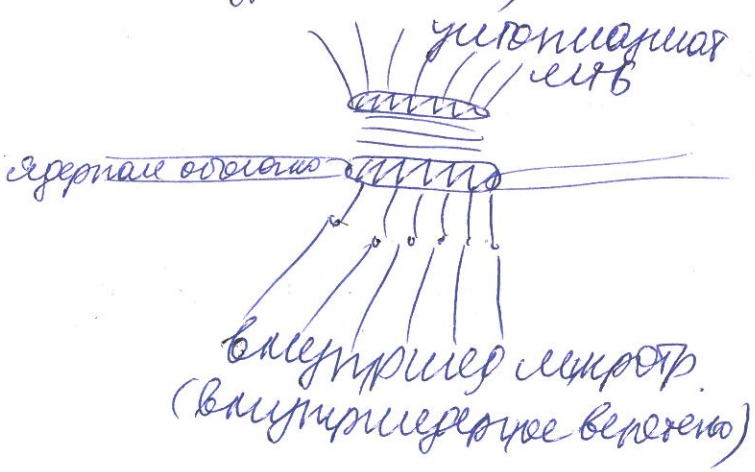 цитоплазмат
МТБ
ядерная оболочка
внутрияд микротр.
(внутриядерное веретено)